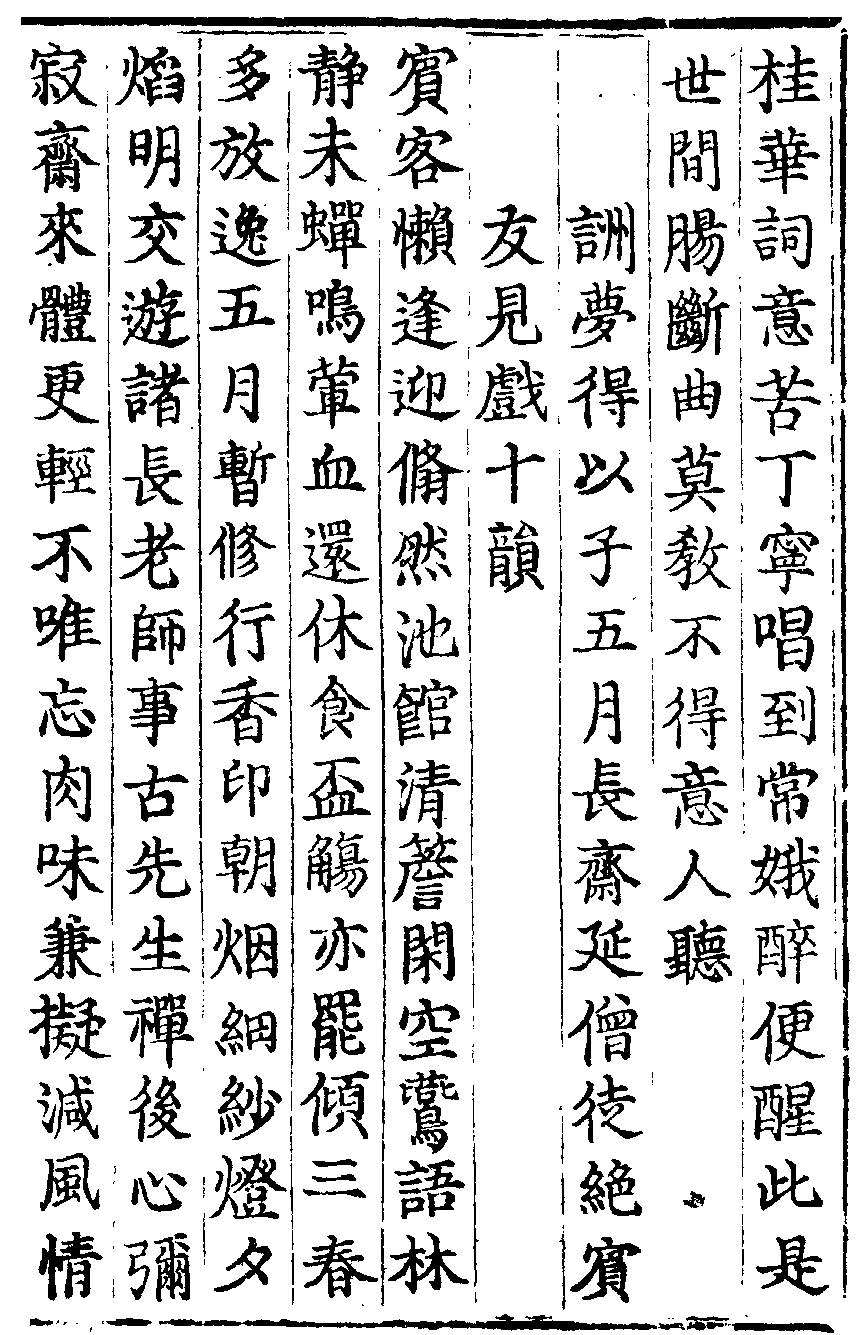 桂華詞意苦丁寧唱到常娥醉便醒此是
世間腸斷曲莫教不得意人聽
詶夢得以予五月長齋延僧徒絶賓
友見戲十韻
賓客懶逢迎翛然池館清簷閑空鷰語林
静未蟬鳴葷血還休食盃觴亦罷傾三春
多放逸五月暫修行香印朝烟細紗燈夕
焰明交遊諸長老師事古先生禪後心彌
寂齋來體更輕不唯忘肉味兼擬減風情